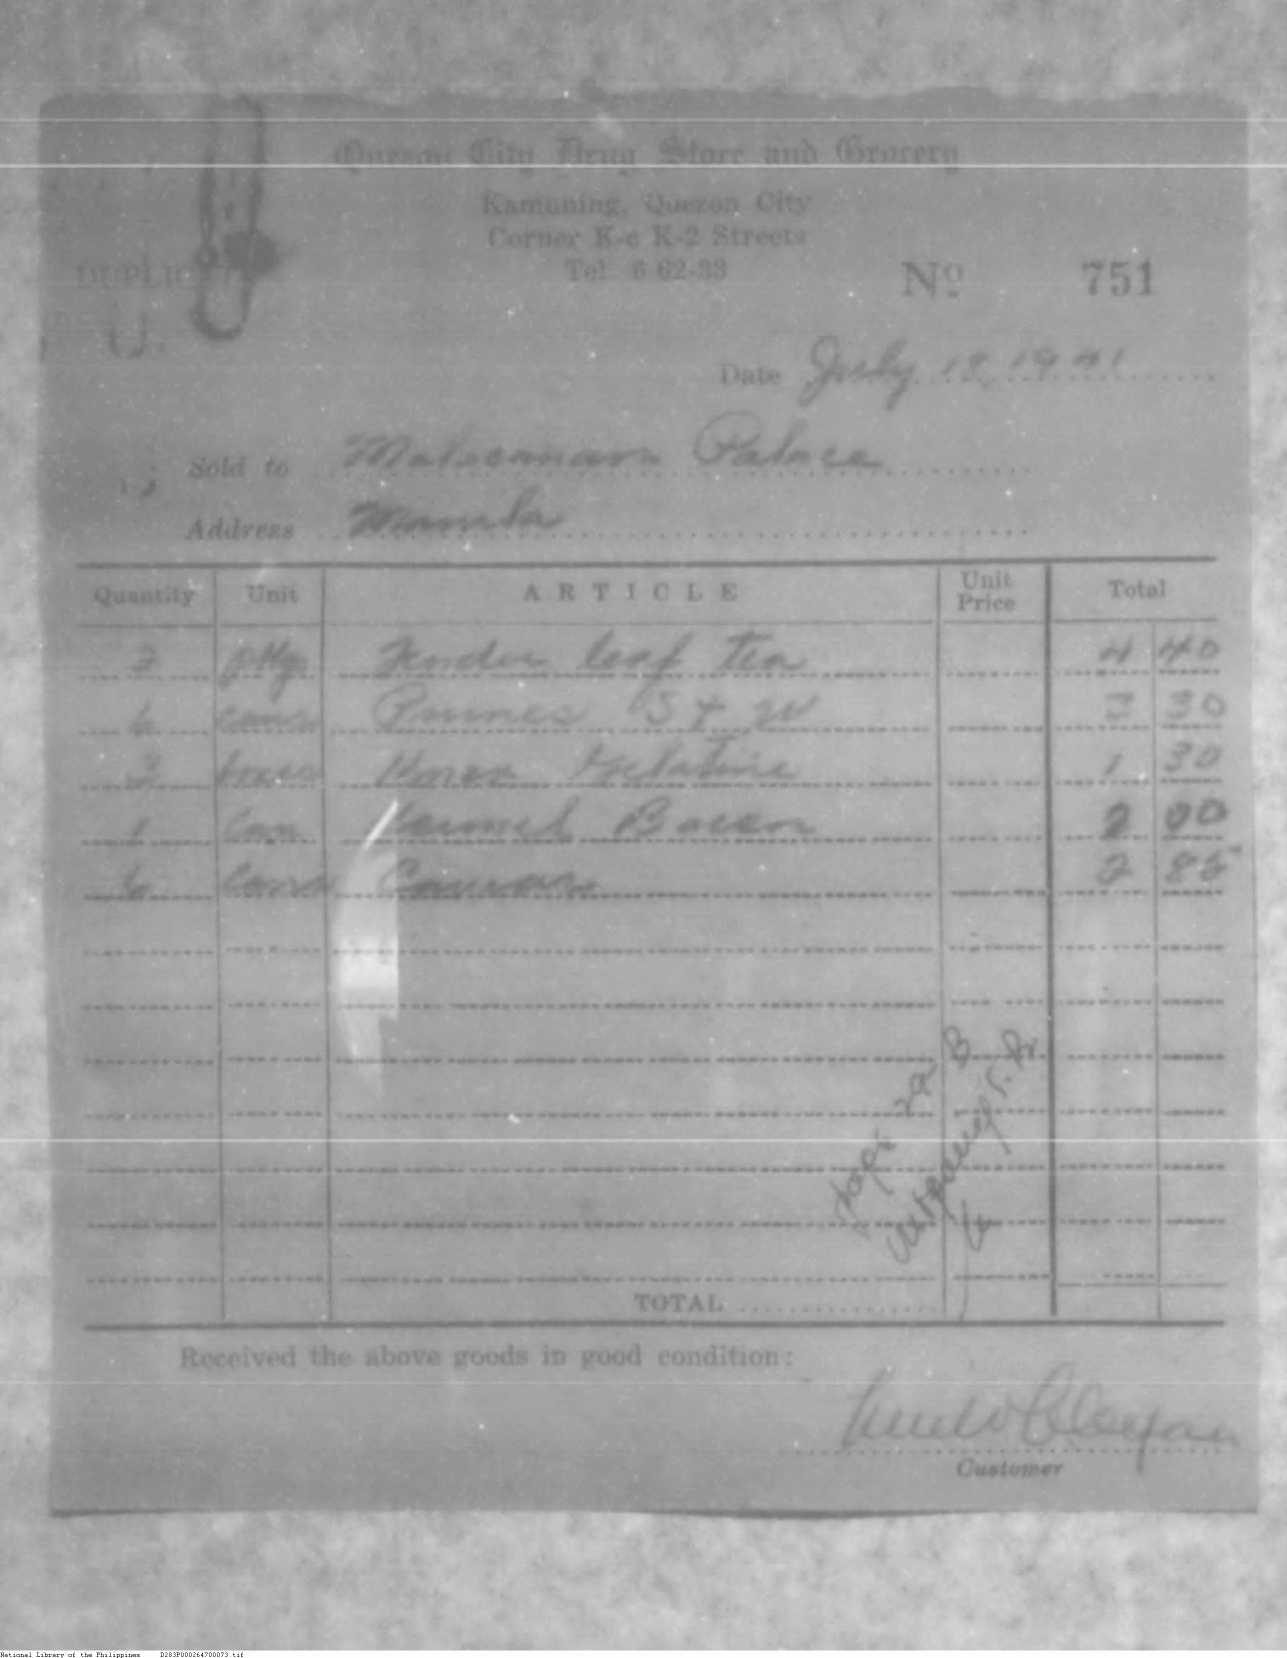 Quezon City Drug Store and Grocery
Kamuning, Quezon City
Corner K-c K-2 Streets
Tel 6 62-33
DUPLIC
Nº 751
Date July 1941
Sold to Malacanan Palace
Address Manila
Quantity Unit ARTICLE Unit Price Total
pkg Tender leaf Tea 4 40
6 cans Prunes S & W 3 30
boxes Knox Gelatine 1 30
1 Can Hormel Bacon 2 00
6 Cans 2 85
TOTAL
Received the above goods in good condition:
Customer
National Library of the Philippines D283P000264700073.tif